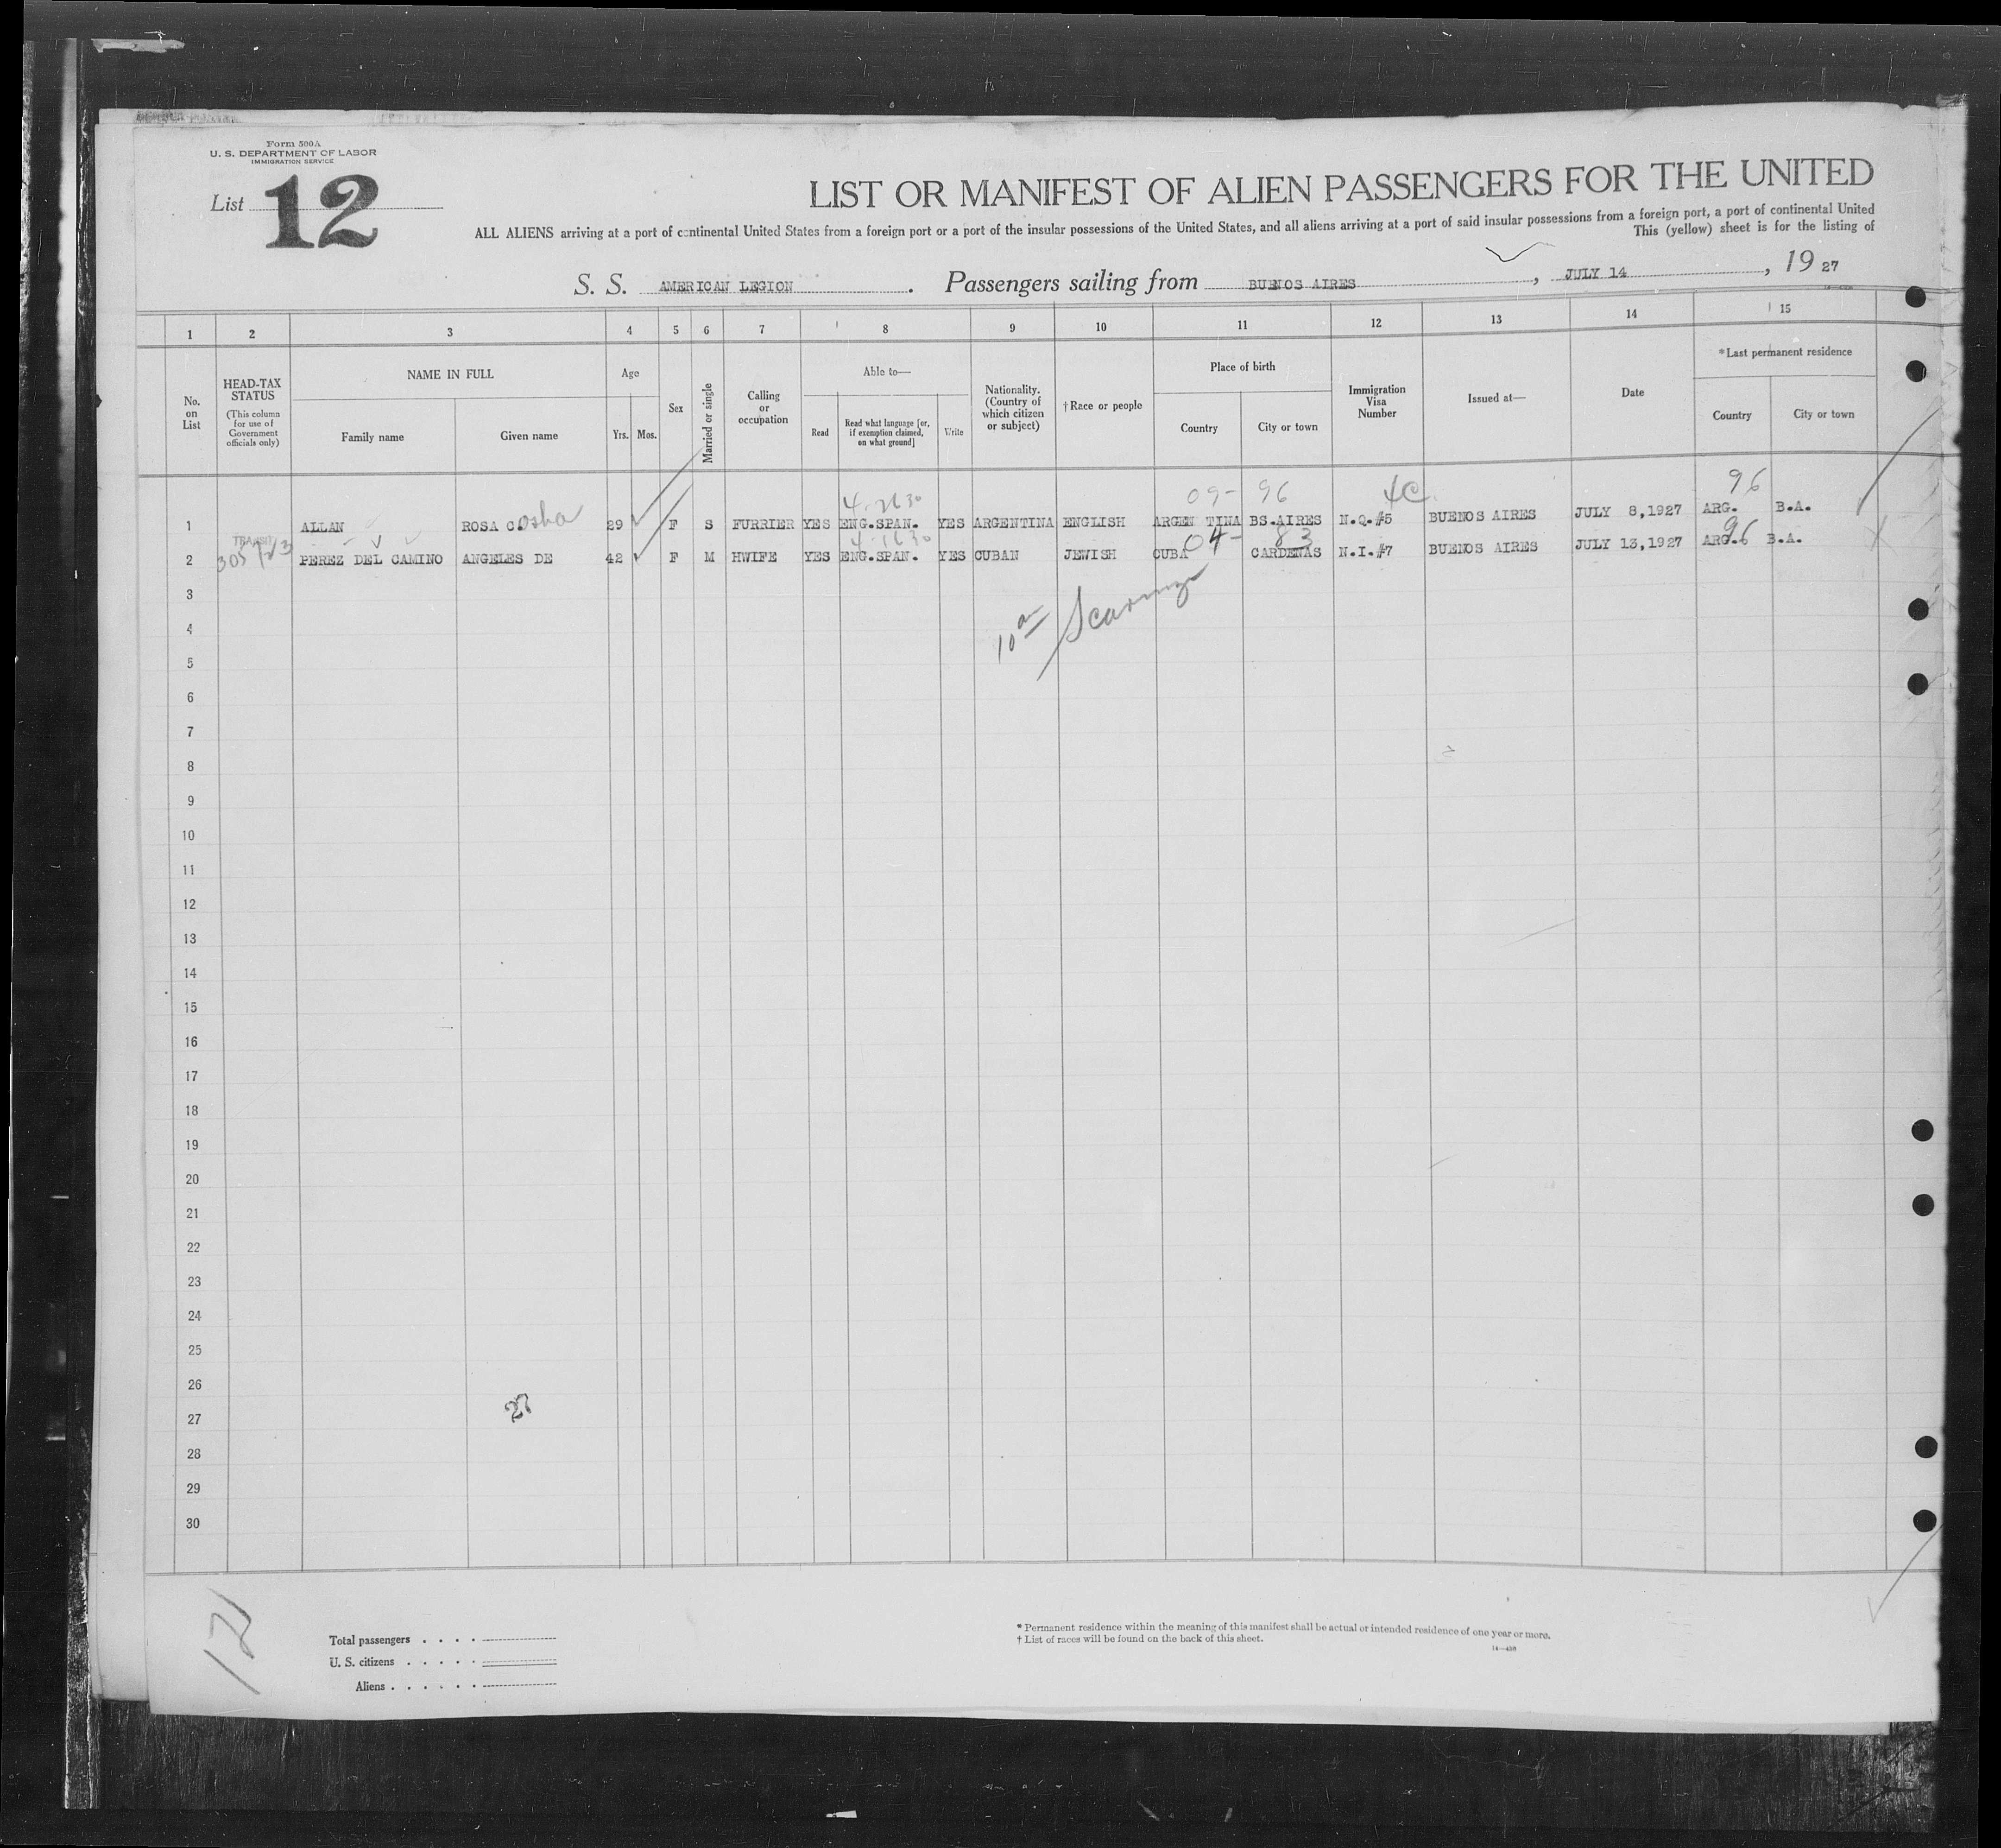 Form 500A
U. S. DEPARTMENT OF LABOR
IMMIGRATION SERVICE
List 12
LIST OR MANIFEST OF ALIEN PASSENGERS FOR THE UNITED
ALL ALIENS arriving at a port of continental United States from a foreign port or a port of the insular possessions of the United States, and all aliens arriving at a port of said insular possessions from a foreign port, a port of continental United
This (yellow) sheet is for the listing of
S. S. AMERICAN LEGION. Passengers sailing from BUENOS AIRES, JULY 14, 19 27
1 2 3 4 5 6 7 8 9 10 11 12 13 14 15
No. on List
HEAD-TAX STATUS (This column for use of Government officials only)
NAME IN FULL
Family name
Given name
Age
Yrs.
Mos.
Sex
Married or single
Calling or occupation
Able to—
Read
Read what language [or, if exemption claimed, on what ground]
Write
Nationality. (Country of which citizen or subject)
†Race or people
Place of birth
Country
City or town
Immigration Visa Number
Issued at—
Date
*Last permanent residence
Country
City or town
09- 96 4C. 96
1 ALLAN ROSA C.osha 29 F S FURRIER YES ENG.SPAN. YES ARGENTINA ENGLISH ARGEN TINA BS.AIRES N.Q.#5 BUENOS AIRES JULY 8,1927 ARG. B.A.
TRANSIT
04- 83 96
2 PEREZ DEL CAMINO ANGELES DE 42 F M HWIFE YES ENG.SPAN. YES CUBAN JEWISH CUBA CARDENAS N.I.#7 BUENOS AIRES JULY 13,1927 ARG. B.A.
3
4
5
6
7
8
9
10
11
12
13
14
15
16
17
18
19
20
21
22
23
24
25
26
27
27
28
29
30
Total passengers . . . .
U. S. citizens . . . . .
Aliens . . . . . .
* Permanent residence within the meaning of this manifest shall be actual or intended residence of one year or more.
† List of races will be found on the back of this sheet.